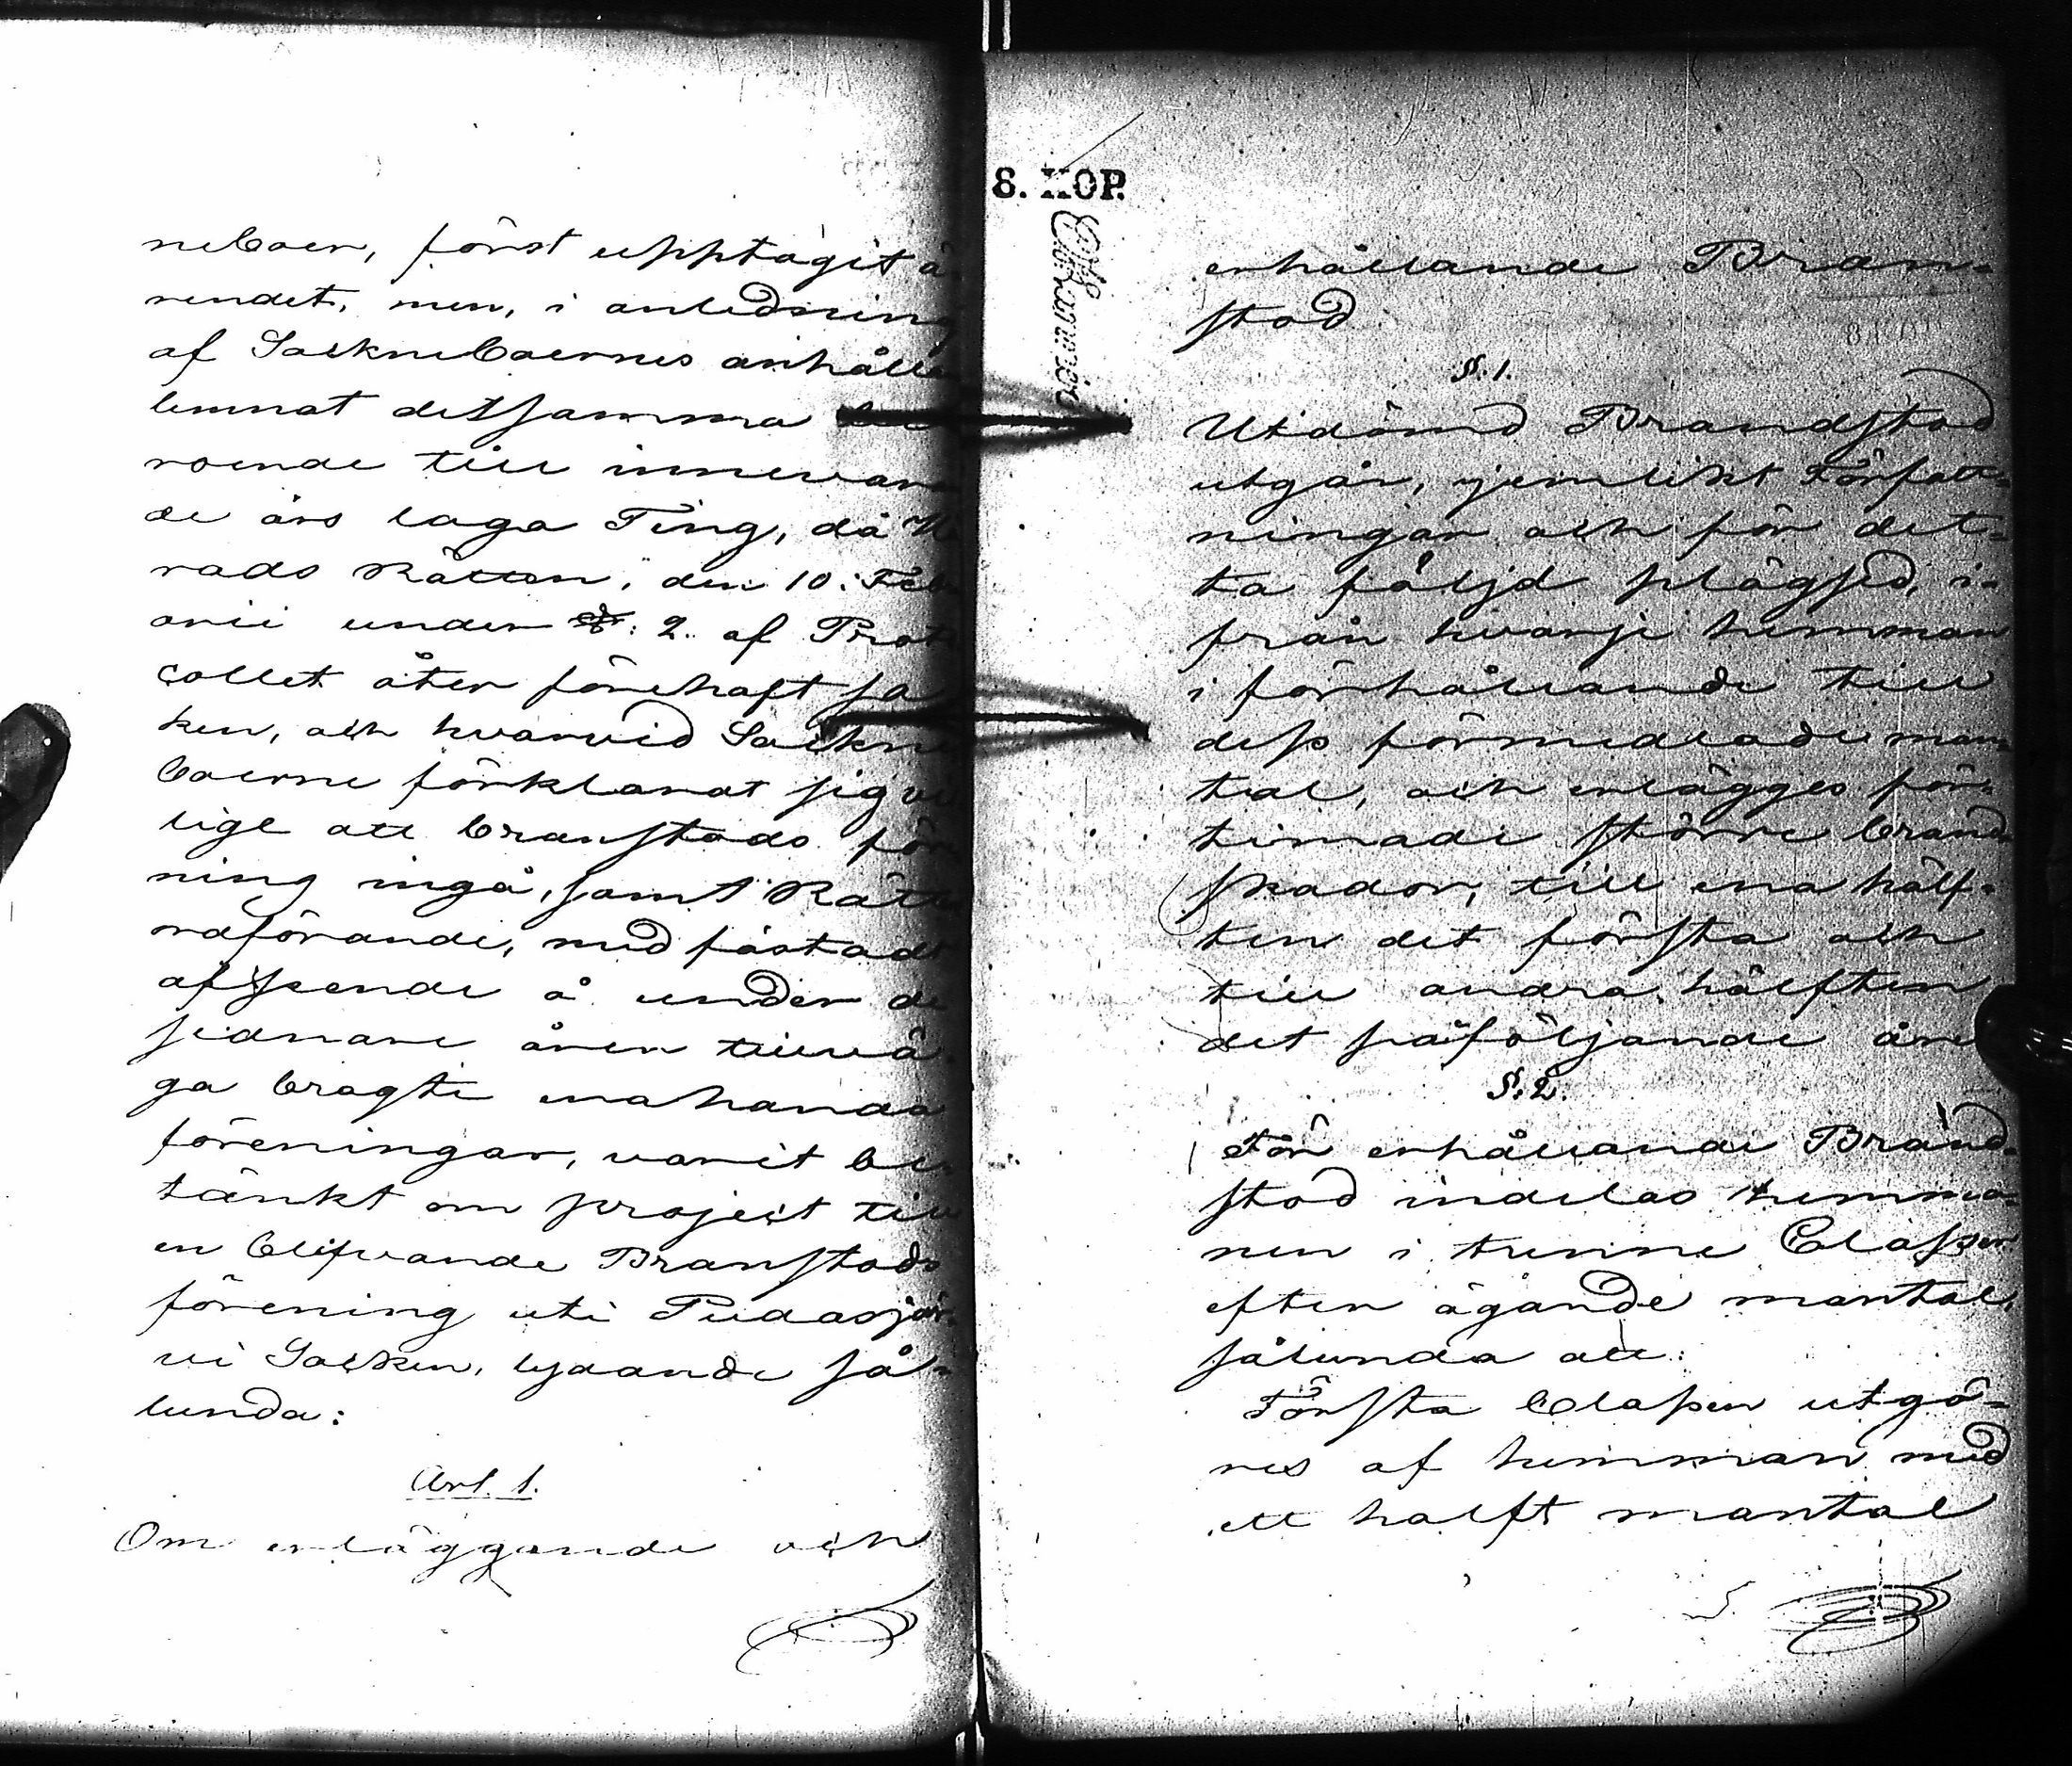 neboer, först upptagit ä
rendet, men, i anledning
af Sockneboernes anhålla
lemnat detsamma be
roende till innevaran
de års laga Ting, då Hä
rads Rätten, den 10. Febr
arii under §: 2. af Prot
collet åter förehaft sa
ken, och hvarvid Sockne
boerne förklarat sig vil
lige att branstods för
ning ingå, samt Rätte
ordförande, med fästadt
afseende å under de
sednare åren tillvä
ga bragte enahanda
föreningar, varit be
tänkt om project till
en blifvande Branstods
förening uti Pudasjär-
vi Socken, lydande så-
lunda:
Art. 1.
Om erläggande och
8. KOP.
erhållande Bran-
stod
§. 1.
Utdömd Brandstod
utgår, jemlikt Författ-
ningar och för det-
ta följd plägsed, i-
från hvarje hemman
i förhållande till
dess förmedlade man-
tal, och erlägges för-
timade större brand-
skador, till ena hälf-
ten det första och
till andra hälften
det påföljande åre
§. 2.
För erhållande Brand-
stod indelas hemma-
nen i trenne Classer
efter ägande mantal,
sålunda att:
Första Classen utgö-
res af hemman med
ett halft mantal